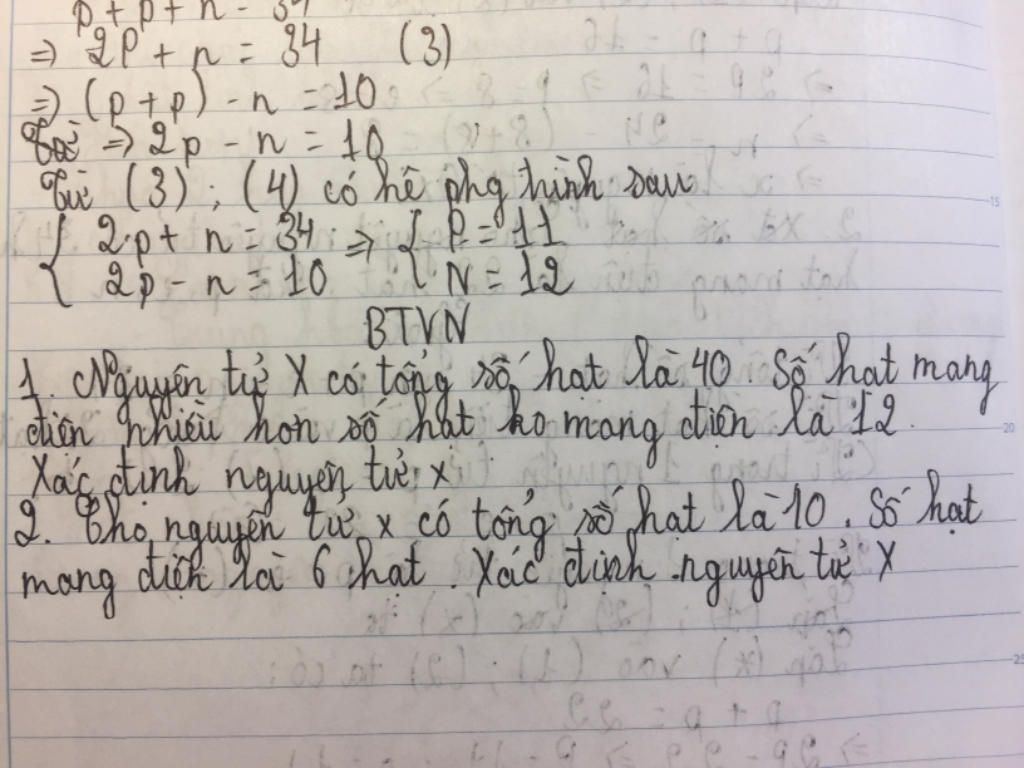 p + p + n = 34
=> 2P + n = 34 (3)
=> (p + p) - n = 10
=> 2p - n = 10
Từ (3) ; (4) có hê phg hình sau
{ 2.p + n = 34 => { P = 11
2p - n = 10 N = 12
BTVN
1. Nguyên tử X có tổng số hạt là 40. Số hạt mang
điện nhiều hơn số hạt ko mang điện là 12.
Xác định nguyên tử x
2. Cho nguyên tử x có tổng số hạt là 10. Số hạt
mang điện là 6 hạt. Xác định nguyên tử X
15
20
25